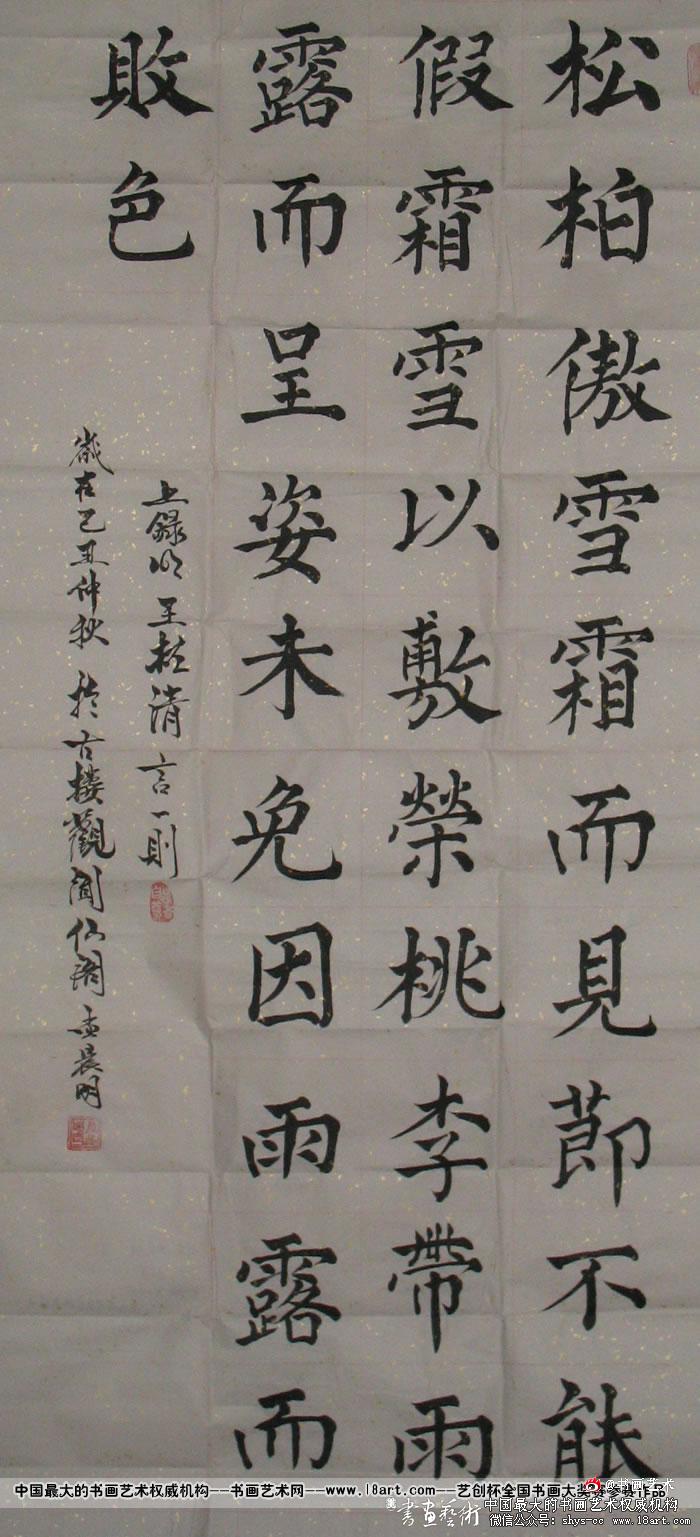 松柏傲雪霜而見莭不能
假霜雪以敷榮桃李帶雨
露而呈姿未免因雨露而
敗色
上録明王杜清言一則
歲在己丑仲秋於古楼觀聞仙阁孟晨明
中国最大的书画艺术权威机构---书画艺术网---www.18art.com---艺创杯全国书画大奖赛参赛作品
@书画艺术
書画藝術
中国最大的书画艺术权威机构
微信公众号: shys-cc www.18art.com